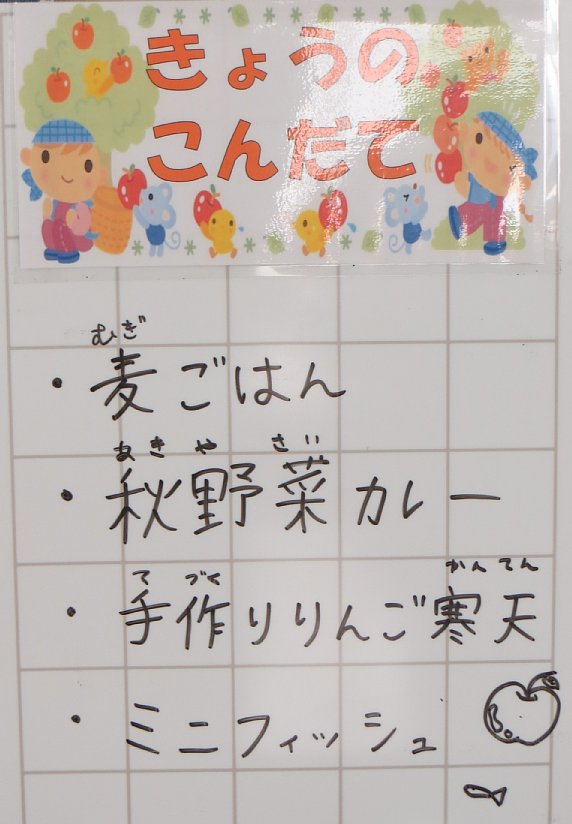 きょうの
こんだて
むぎ
・麦ごはん
あき や さい
・秋野菜カレー
て づく かんてん
・手作りりんご寒天
・ミニフィッシュ